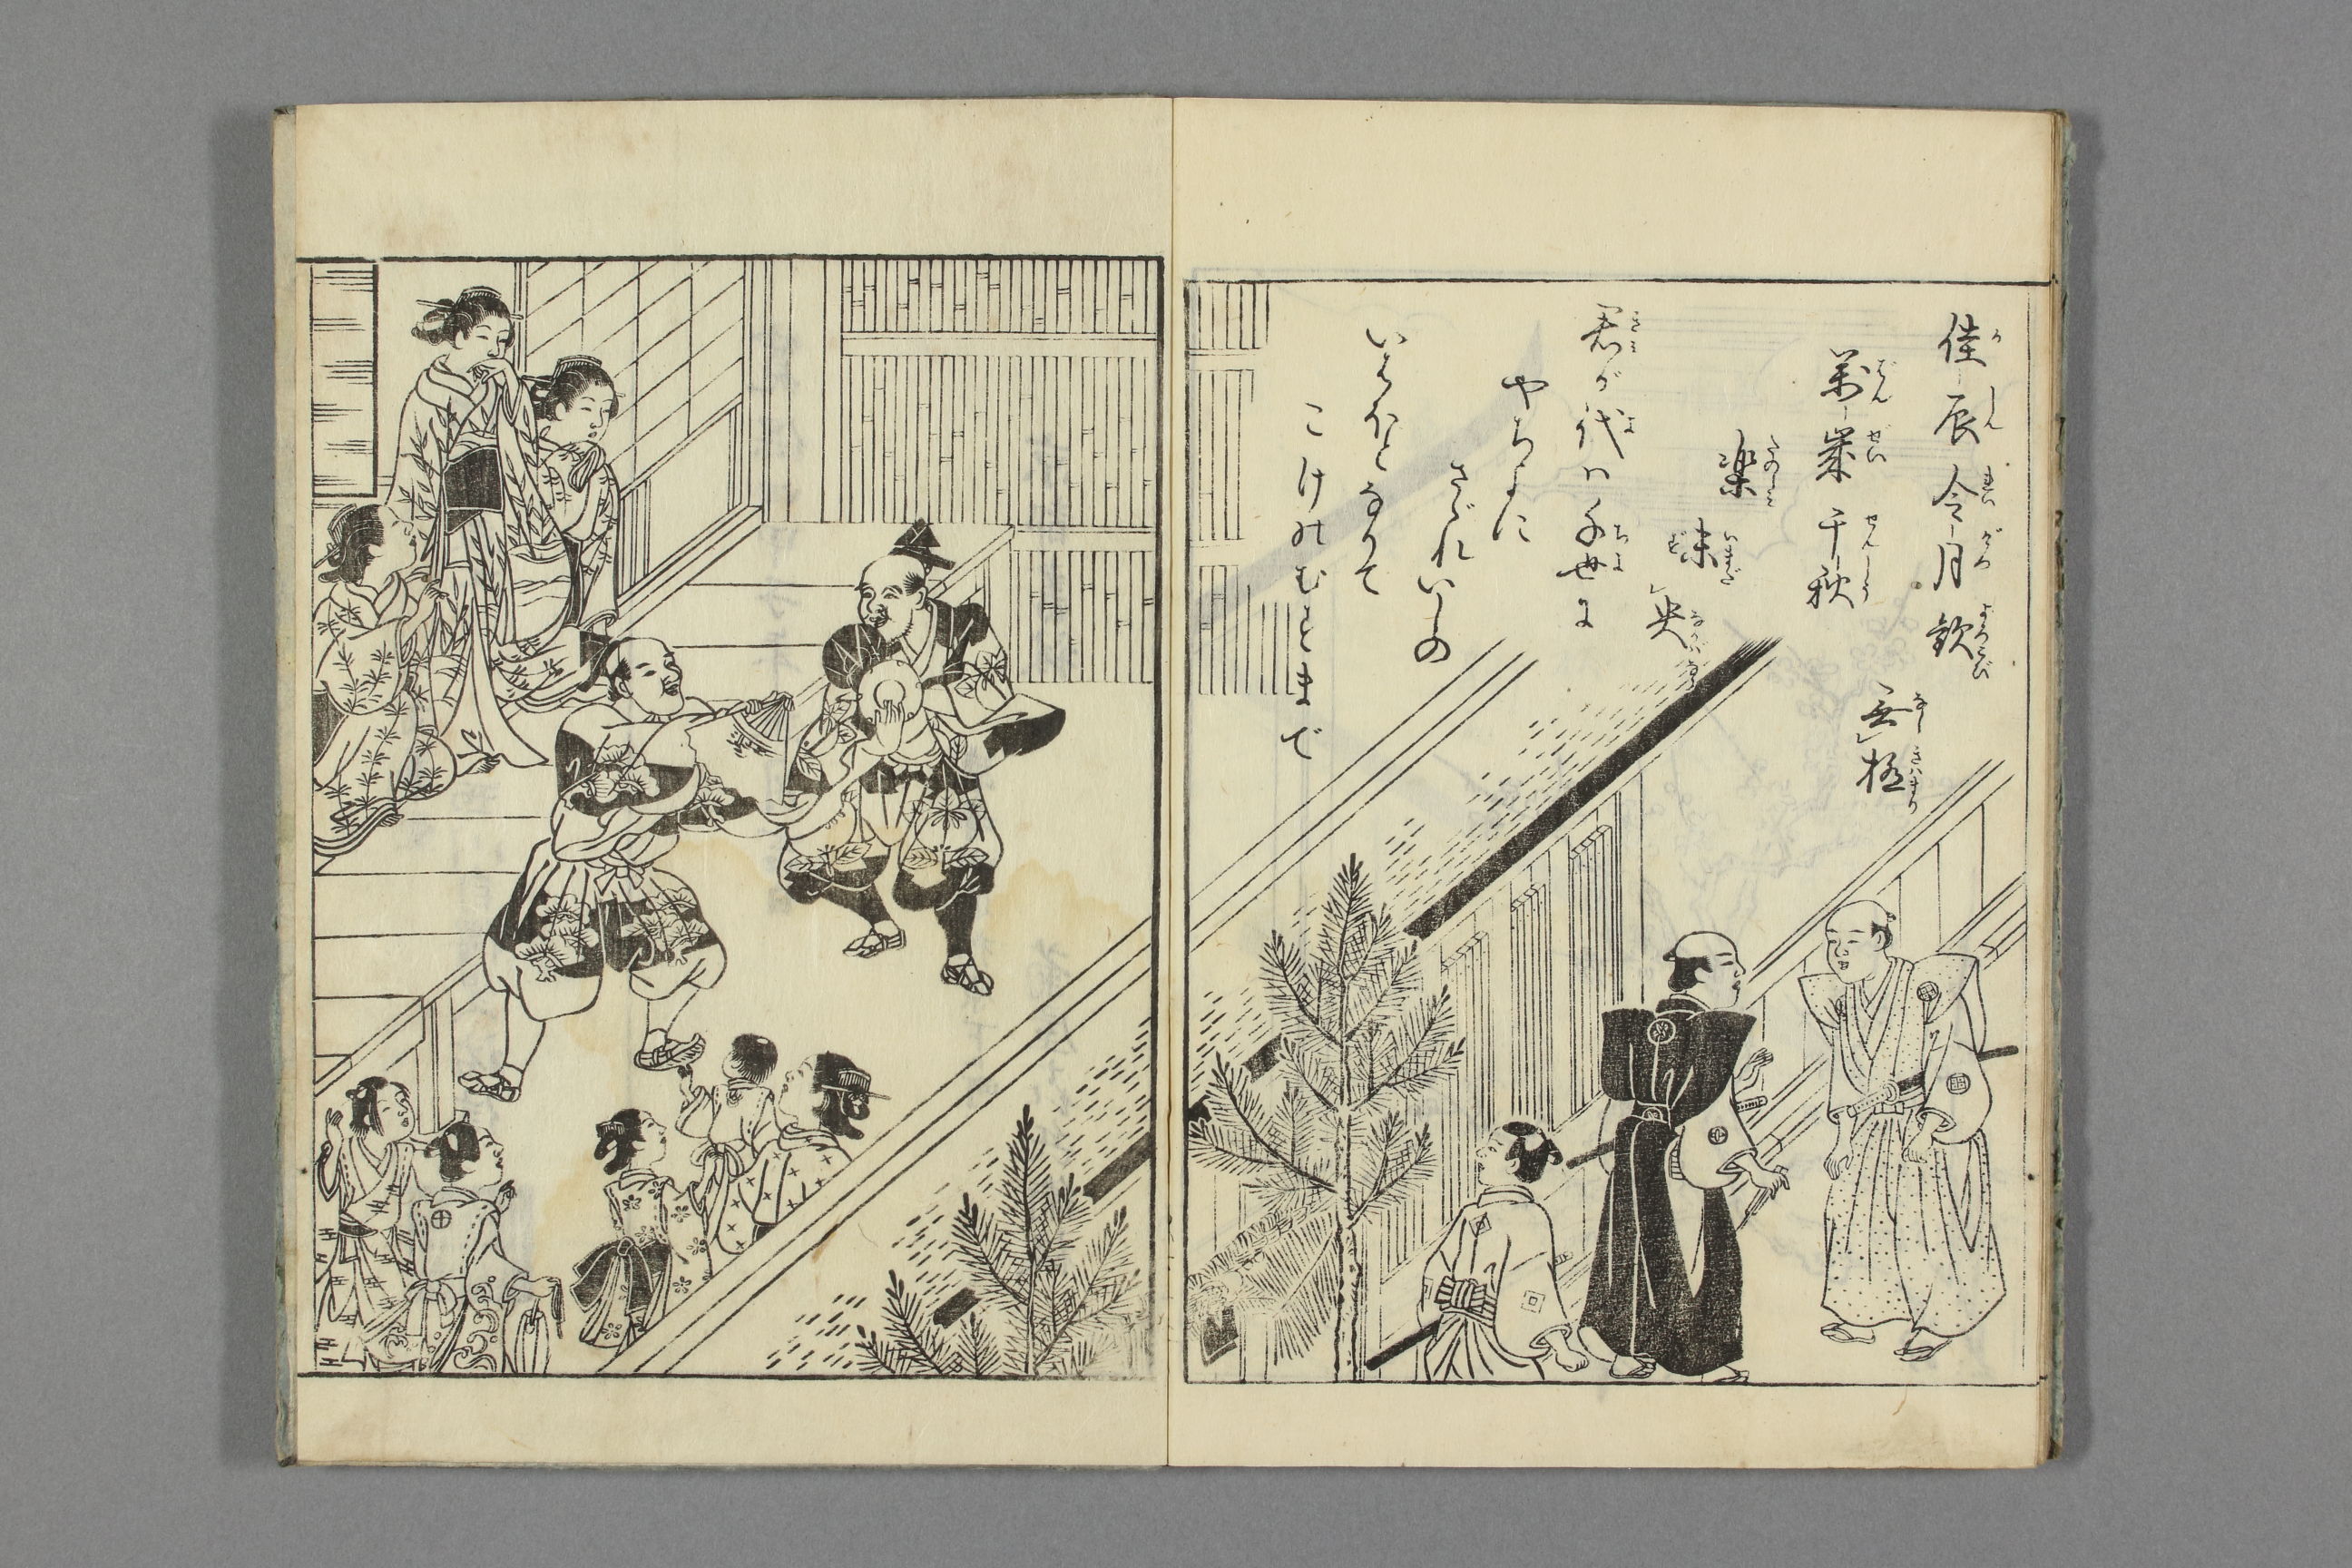 佳辰令月歓
無極
万歳千秋
楽
未央
君が代ハ千世に
やちよに
さゞれいしの
いはほとなりて
こけのむすまで